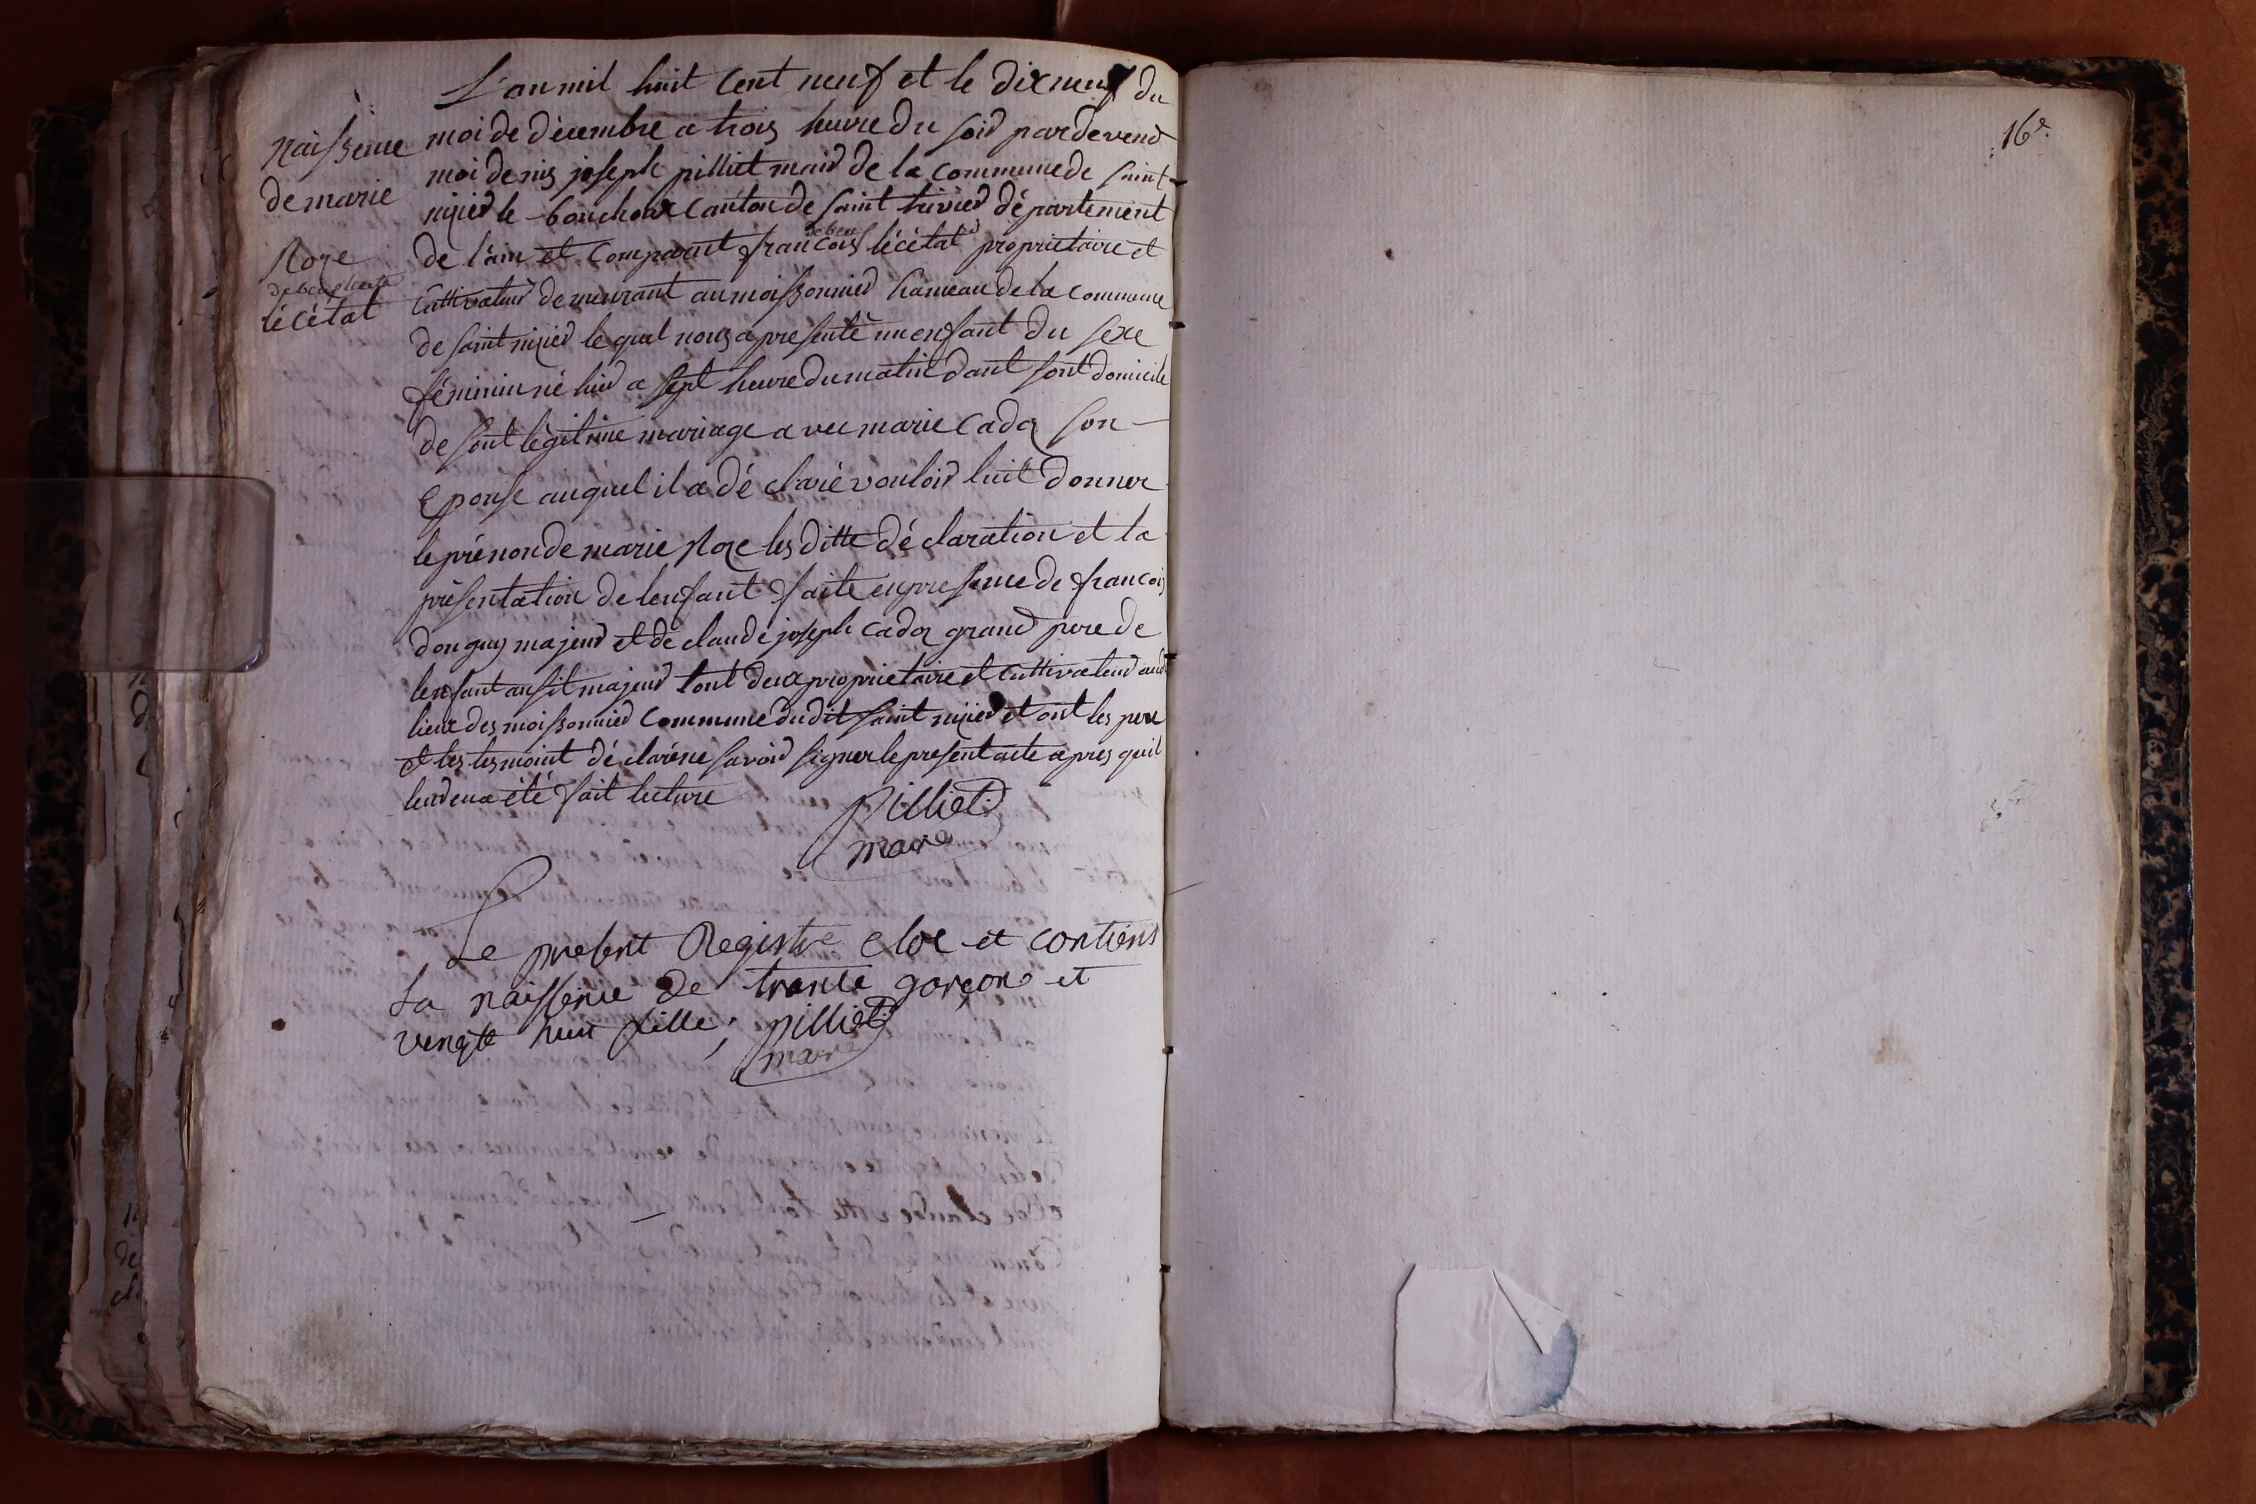 naissence
de marie
Roze
lécétat
L'an mil huit cent neuf et le dix neuf du
moi de décembre a trois heure du soir pardevend
moi denis joseph pilliet mair de la commune de saint
nijier le bouchoux canton de saint trivier département
de l'ain et comparut francois lécétat propriétaire et
cultivateur demeurant au moissonnier hameau de la commune
de saint nijier le quel nous a présenté un enfant du sexe
féminin né hier a sept heure du matin dant sont domicile
de sont légitime mariage avec marie cadoz son
Epouse auquel il a déclaré vouloir luit donner
le prénon de marie Roze les ditte déclaration et la
présentation de lenfant faite en presence de francois
donguy majeur et de claude joseph cadoz grand pere de
lenfant ausit majeur tout deux propriétaire et cultivateur
lieux des moissonnier commune dudit saint nijier et ont les pere
et les tesmoint déclaré ne savoir signer le present acte apres quil
leur eux été fait lecture
pilliet
maire
Le present Registre cloe et contiens
La naissence de trante garçons et
vengte huit fille; pilliet
maire
16e